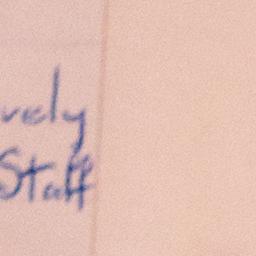 vely
Staff